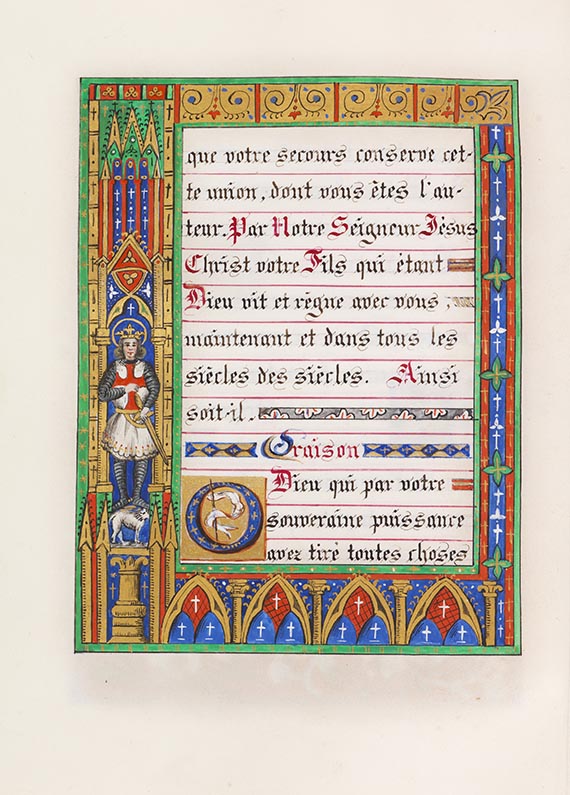 que votre secours conserve cet-
te union, dont vous êtes l'au-
teur. Par Notre Seigneur Jèsus
Christ votre Fils qui étant
Dieu vit et règne avec vous ;
maintenant et dans tous les
siècles des siècles. Ainsi
soit-il.
Oraison
O Dieu qui par votre
souveraine puissance
avez tiré toutes choses